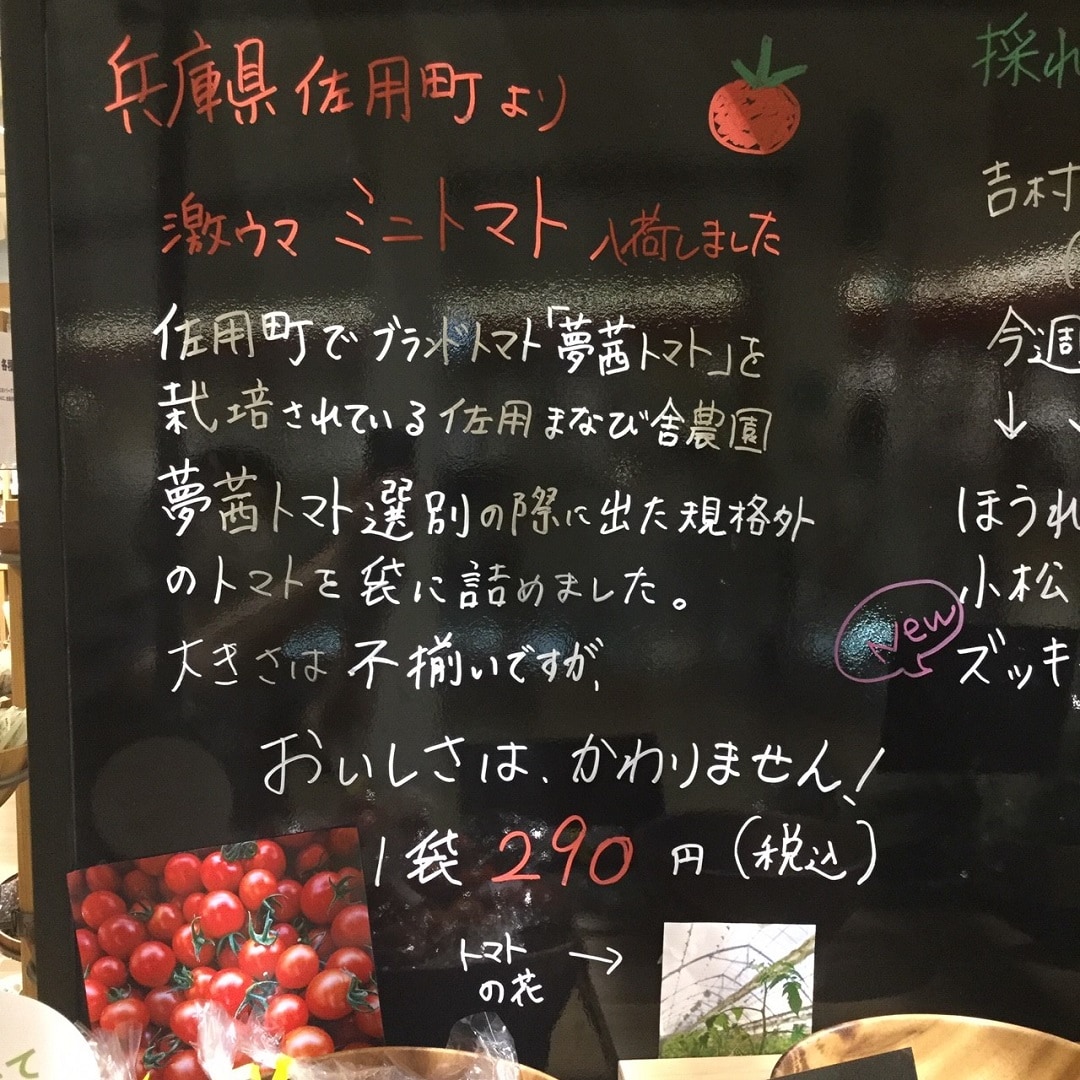 兵庫県佐用町より
激ウマ ミニトマト 入荷しました
佐用町でブランドトマト「夢茜トマト」を
栽培されている佐用まなび舎農園
夢茜トマト選別の際に出た規格外
のトマトを袋に詰めました。
大きさは不揃いですが、
おいしさは、かわりません!
1袋 290円(税込)
トマト
の花 →
採れ
吉村
(
今週
↓
ほうれ
小松
New
ズッキ